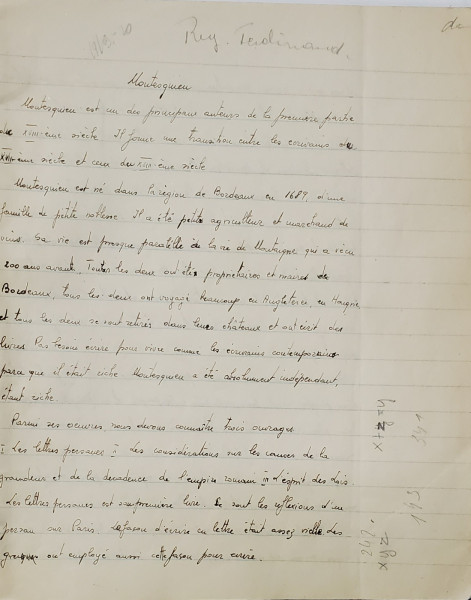 de
Rey. Ferdinand.
Montesquieu
Montesquieu est un des principaux auteurs de la première partie
du XVIII-ème siècle. Il forme une transition entre les écrivains du
XVII-ème siècle et ceux du XVIII-ème siècle
Montesquieu est né dans la région de Bordeaux en 1689, d'une
famille de petite noblesse. Il a été petit agriculteur et marchand de
vins. Sa vie est presque parallèle à la vie de Montaigne qui a vécu
200 ans avant. Toutes les deux ont été propriétaires et maires de
Bordeaux, tous les deux ont voyagé beaucoup en Angleterre, en Hongrie,
et tous les deux se sont retirés dans leurs châteaux et ont écrit des
livres Pas besoin écrire pour vivre comme les écrivains contemporains
parce que il était riche Montesquieu a été absolument indépendant,
étant riche.
Parmi ses oeuvres nous devons connaître trois ouvrages
I Les lettres persanes II Les considérations sur les causes de la
grandeur et de la decadence de l'empire romain III L'esprit des lois.
Les lettres persanes est sa première livre. Ce sont les réflexions d'un
persan sur Paris. La façon d'écrire en lettre était assez vieille. Les
grecques ont employé aussi cette façon pour écrire.
341
195